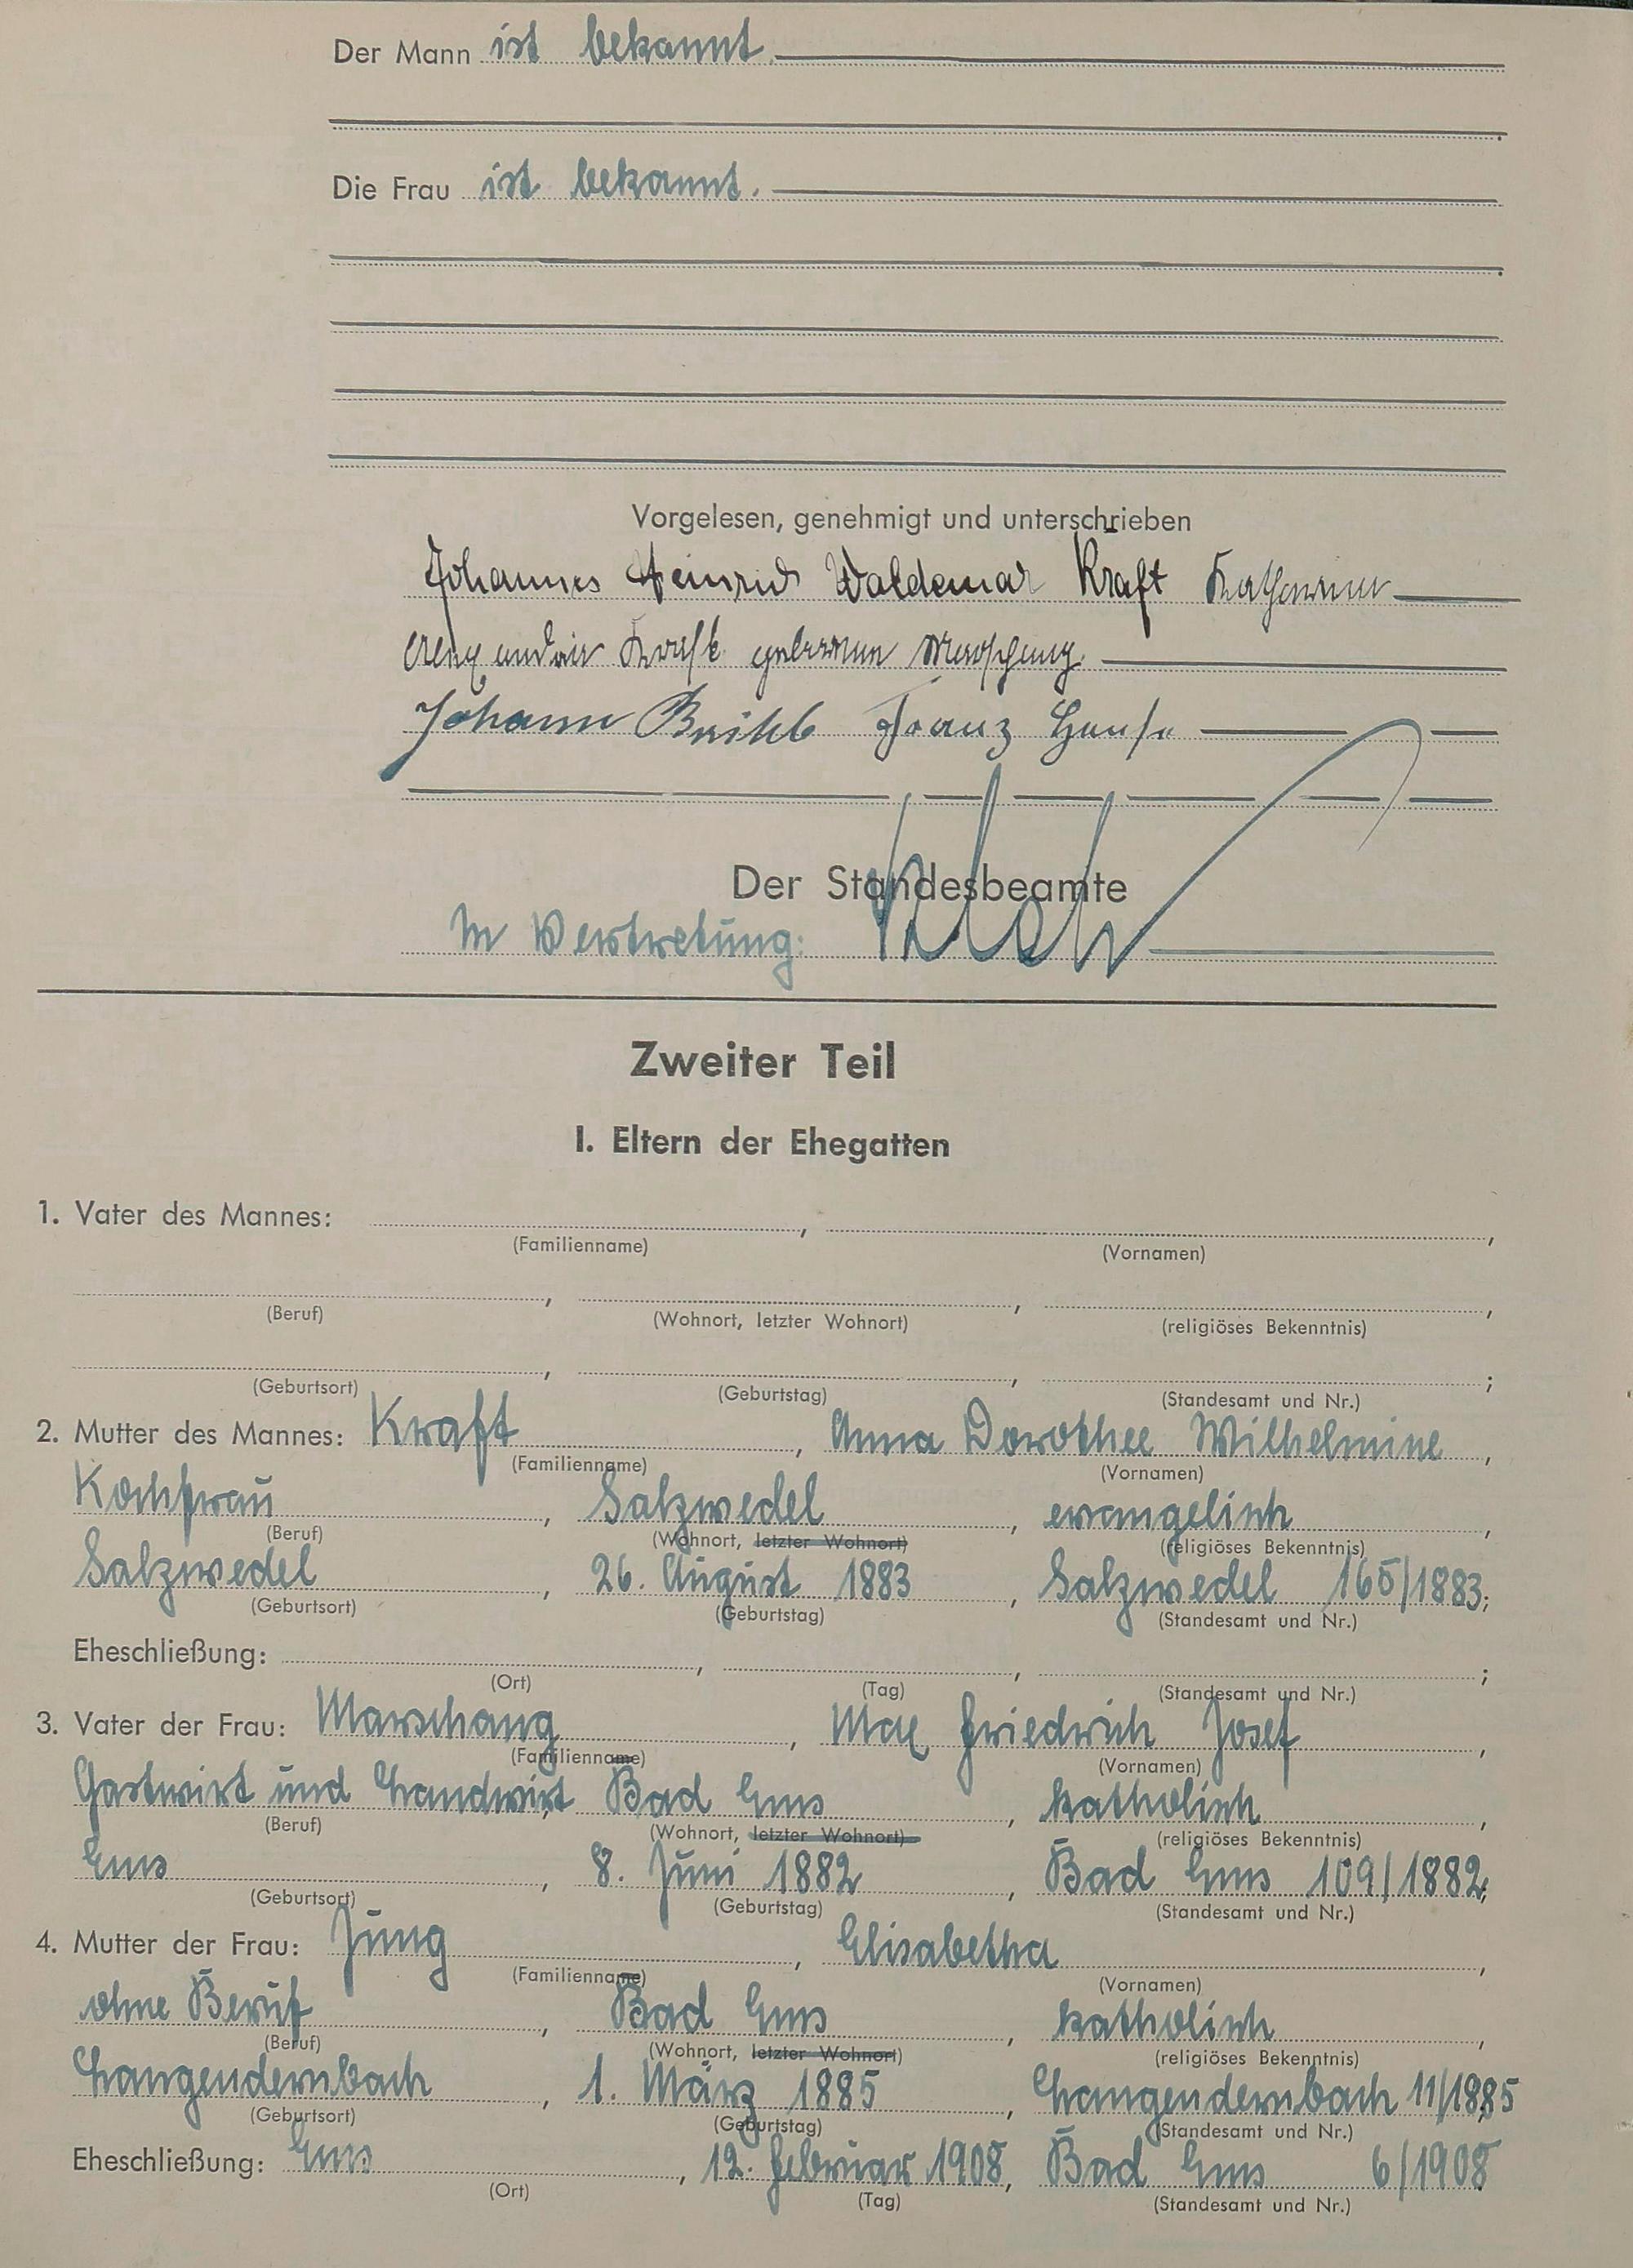 Der Mann ist bekannt.
Die Frau ist bekannt.
Vorgelesen, genehmigt und unterschrieben
Johannes Heinrich Waldemar Kraft Katharina
Kraft geborene Marschang
Johann Franz
Der Standesbeamte
In Vertretung:
Zweiter Teil
I. Eltern der Ehegatten
1. Vater des Mannes: , ,
(Familienname) (Vornamen)
, , ,
(Beruf) (Wohnort, letzter Wohnort) (religiöses Bekenntnis)
, , ;
(Geburtsort) (Geburtstag) (Standesamt und Nr.)
2. Mutter des Mannes: Kraft , Anna Dorothee Wilhelmine ,
(Familienname) (Vornamen)
Kochfrau , Salzwedel , evangelisch ,
(Beruf) (Wohnort, letzter Wohnort) (religiöses Bekenntnis)
Salzwedel , 26. August 1883 , Salzwedel 165/1883;
(Geburtsort) (Geburtstag) (Standesamt und Nr.)
Eheschließung: , , ;
(Ort) (Tag) (Standesamt und Nr.)
3. Vater der Frau: Marschang , Max Friedrich Josef ,
(Familienname) (Vornamen)
Gastwirt und Landwirt, Bad Ems , katholisch ,
(Beruf) (Wohnort, letzter Wohnort) (religiöses Bekenntnis)
Ems , 8. Juni 1882 , Bad Ems 109/1882;
(Geburtsort) (Geburtstag) (Standesamt und Nr.)
4. Mutter der Frau: Jung , Elisabetha ,
(Familienname) (Vornamen)
ohne Beruf , Bad Ems , katholisch ,
(Beruf) (Wohnort, letzter Wohnort) (religiöses Bekenntnis)
Langendernbach , 1. März 1885 , Langendernbach 11/1885
(Geburtsort) (Geburtstag) (Standesamt und Nr.)
Eheschließung: Ems , 12. Februar 1908, Bad Ems 6/1908
(Ort) (Tag) (Standesamt und Nr.)